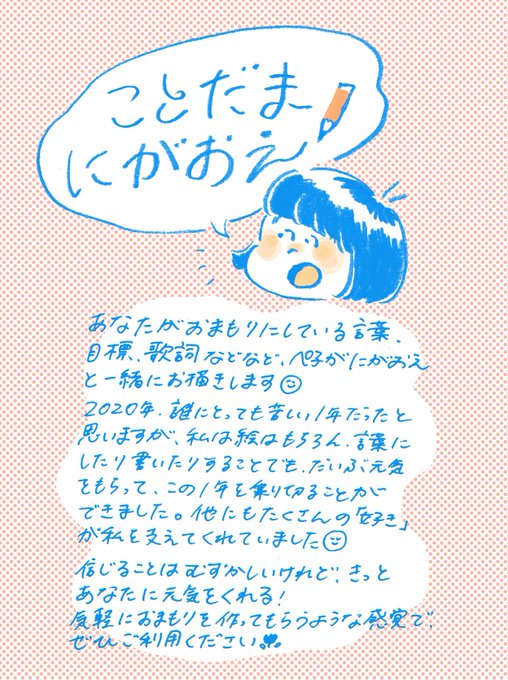 ことだま
にがおえ
あなたがおまもりにしている言葉、
目標、歌詞などなど、ペ子がにがおえ
と一緒にお描きします
2020年、誰にとっても苦しい1年だったと
思いますが、私は絵はもちろん、言葉に
したり書いたりすることでも、だいぶ元気
をもらって、この1年を乗り切ることが
できました。他にもたくさんの「好き」
が私を支えてくれていました
信じることはむずかしいけれど、きっと
あなたに元気をくれる!
気軽におまもりを作ってもらうような感覚で、
ぜひご利用ください